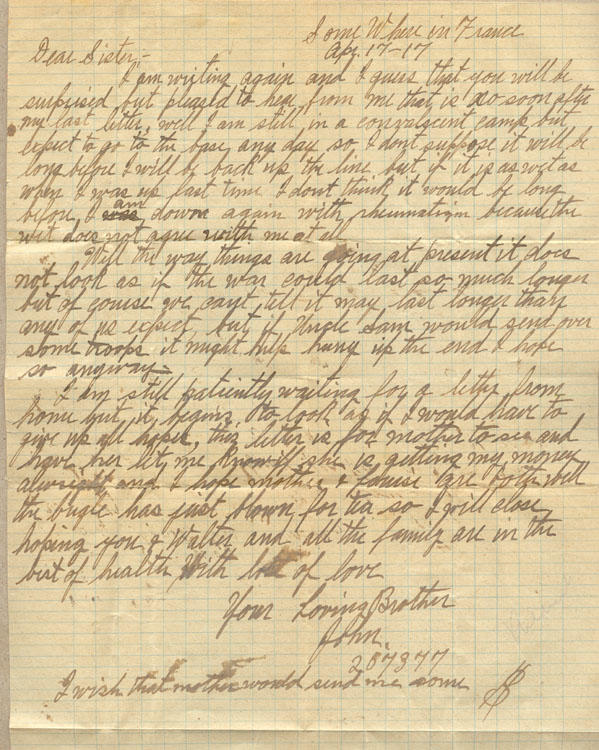 Some Where in France
Apr. 17-17
Dear Sister,-
I am writing again and I guess that you will be
surprised but pleased to hear from me that is so soon after
my last letter, well I am still in a convalscent camp but
expect to go to the base any day so I dont suppose it will be
long before I will be back up the line but if it is as wet as
when I was up last time I dont think it would be long
before I was am down again with rheumatism because the
wet does not agree with me at all
Well the way things are going at present it does
not look as if the war could last so much longer
but of course we cant tell it may last longer than
any of us expect, but if Uncle Sam would send over
some troops it might help hurry up the end I hope
so anyway-
I am still patiently waiting for a letter from
home but it begins to look as if I would have to
give up all hopes, this letter is for mother to see and
have her let me know if she is getting my money
alwright and I hope mother & Louise are both well
the bugle has just blown for tea so I will close
hoping you & Walter and all the family are in the
best of health With lots of love
Your Loving Brother
John.
287377
I wish that mother would send me some